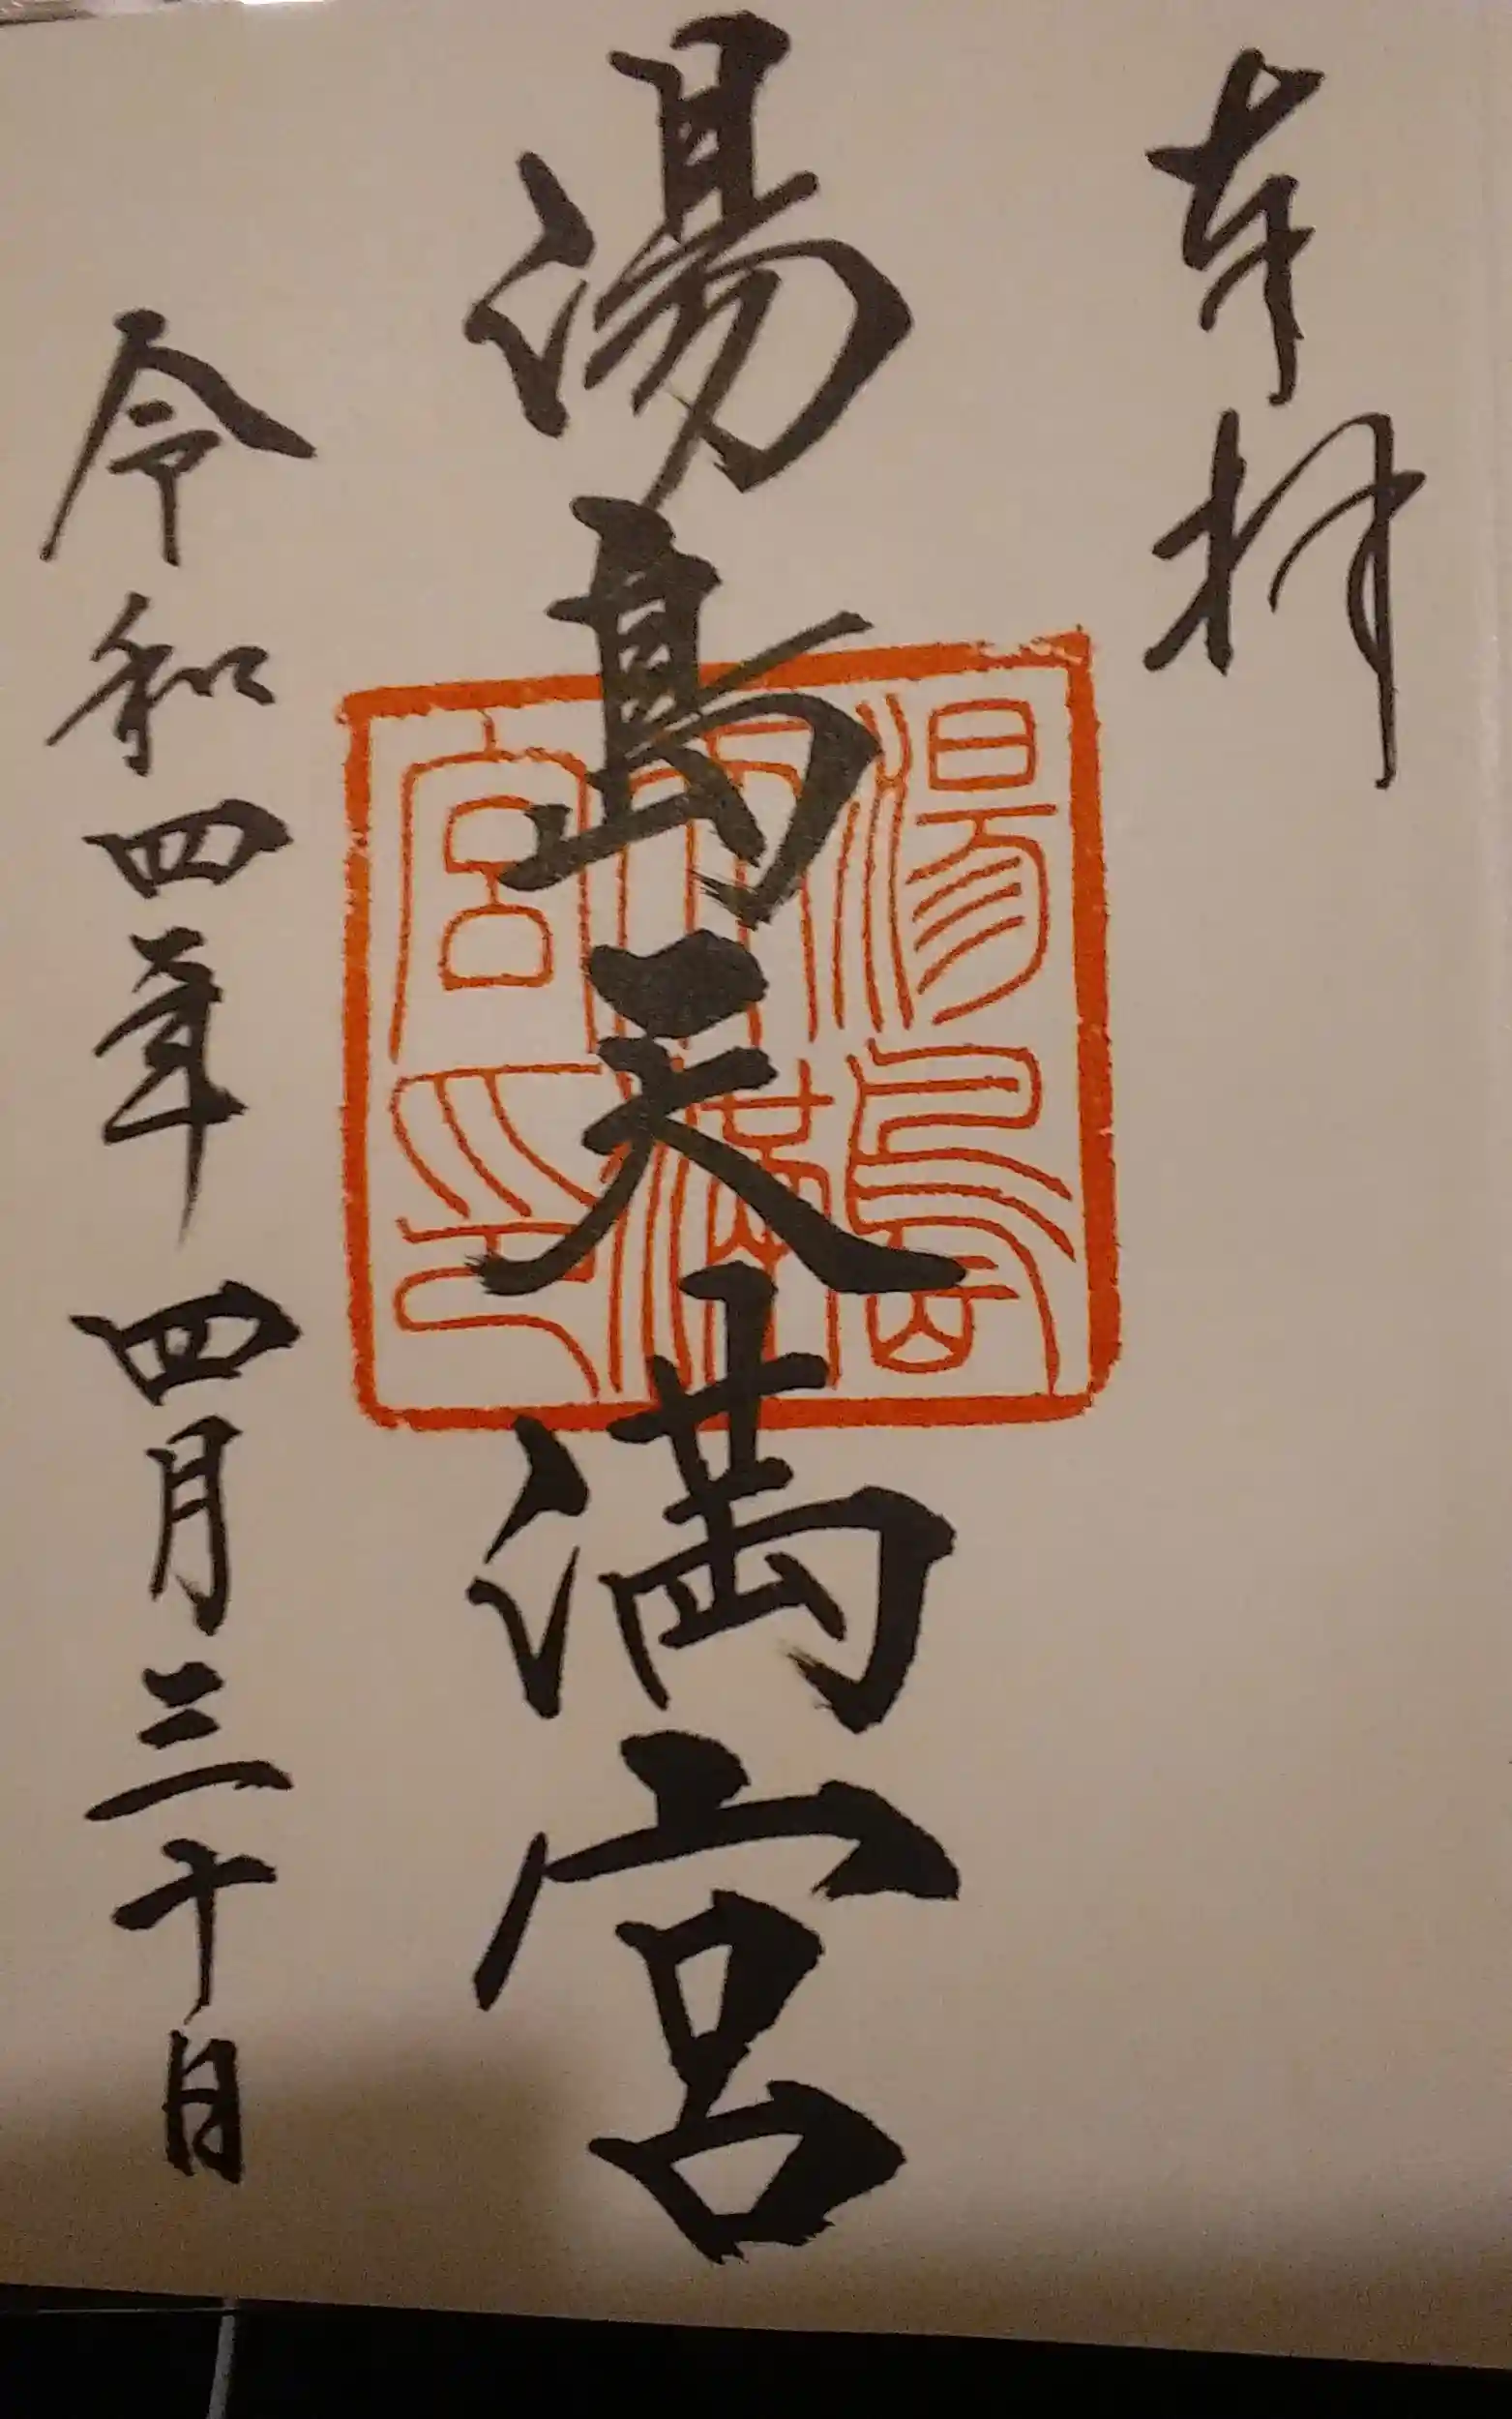 奉拝
湯島天満宮
湯島
天満
宮印
令和四年 四月三十日